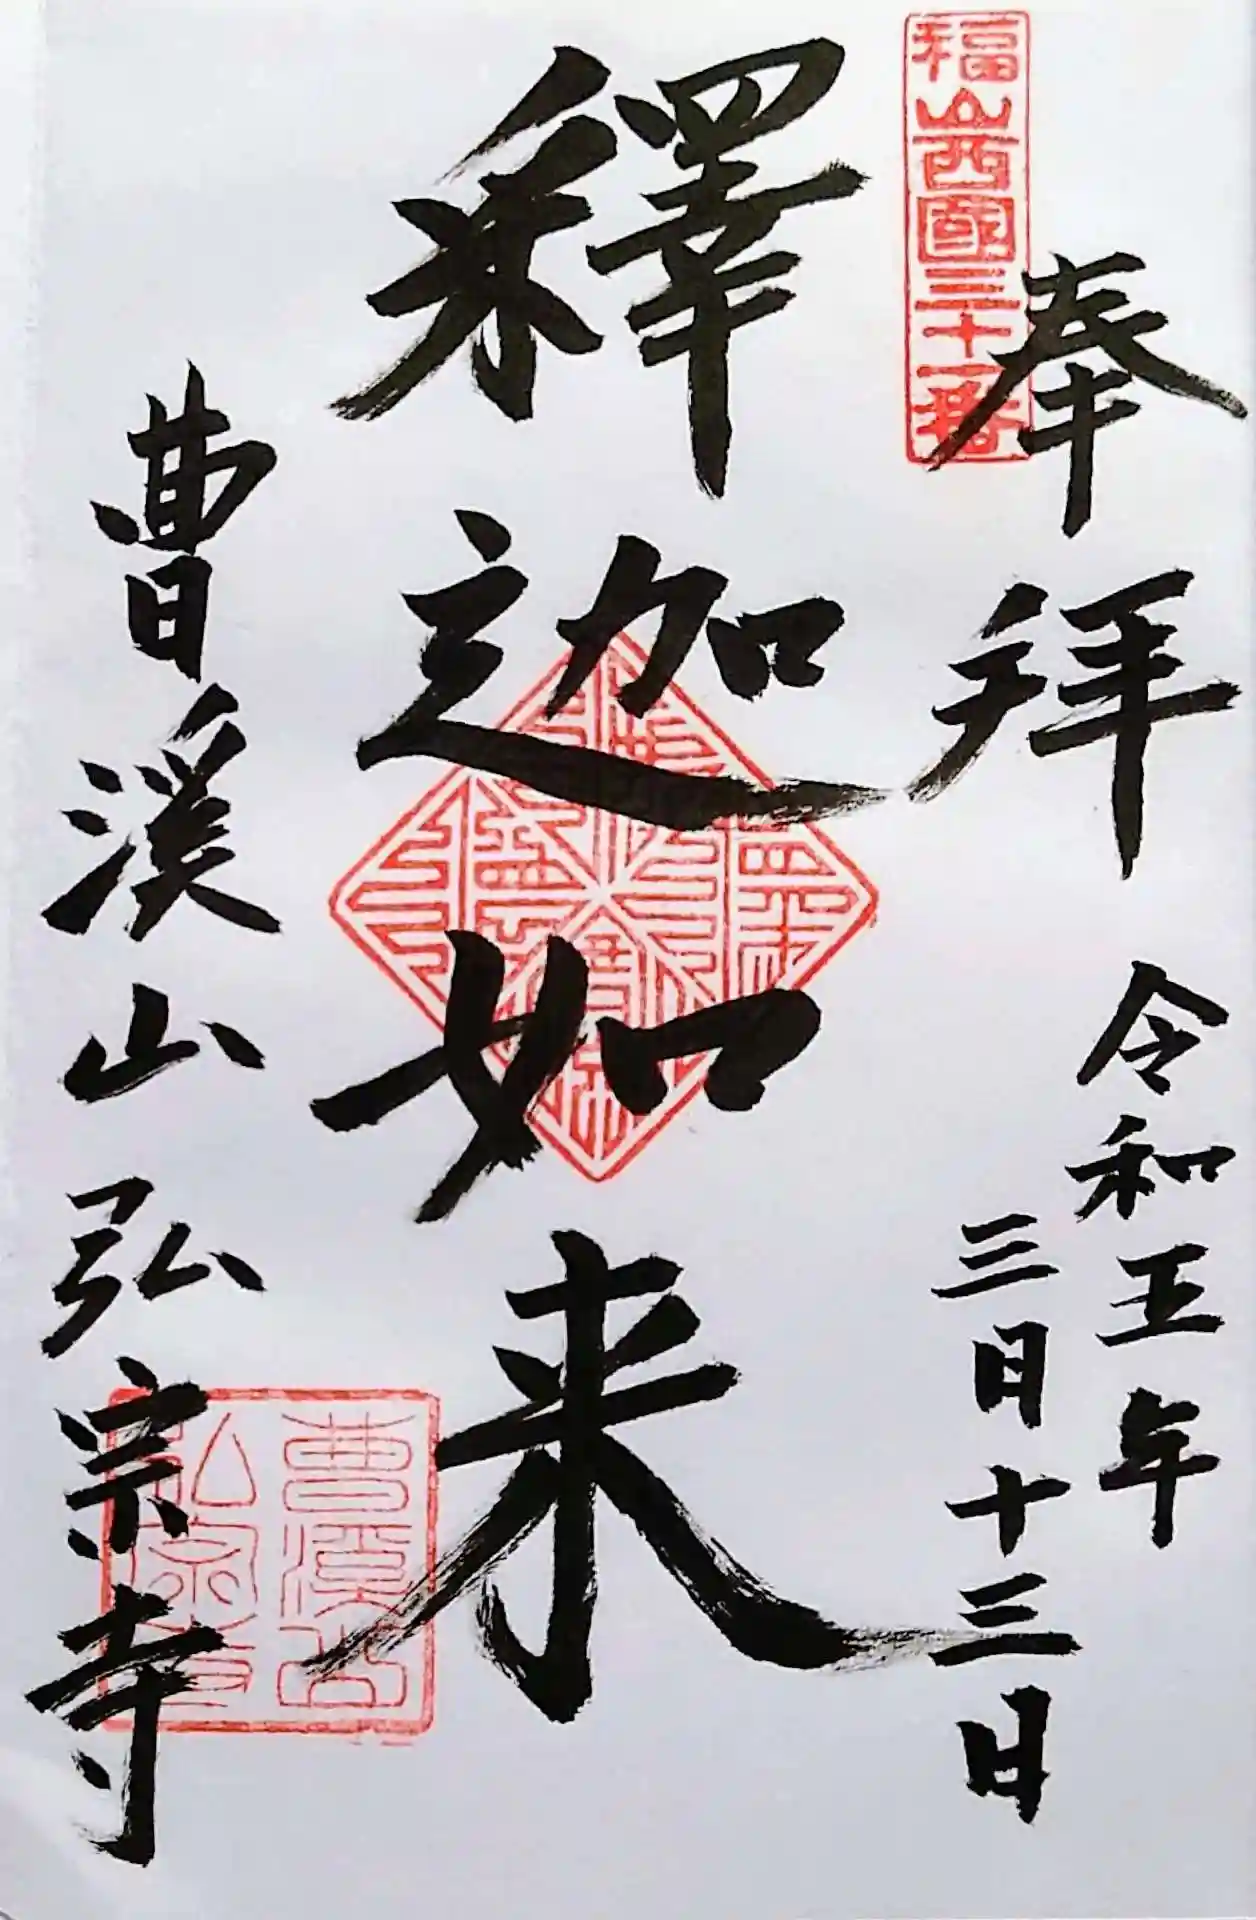 福山西國三十一番
奉拝 令和五年
三月十三日
釋迦如来
曹溪山弘宗寺
曹溪山
弘宗寺